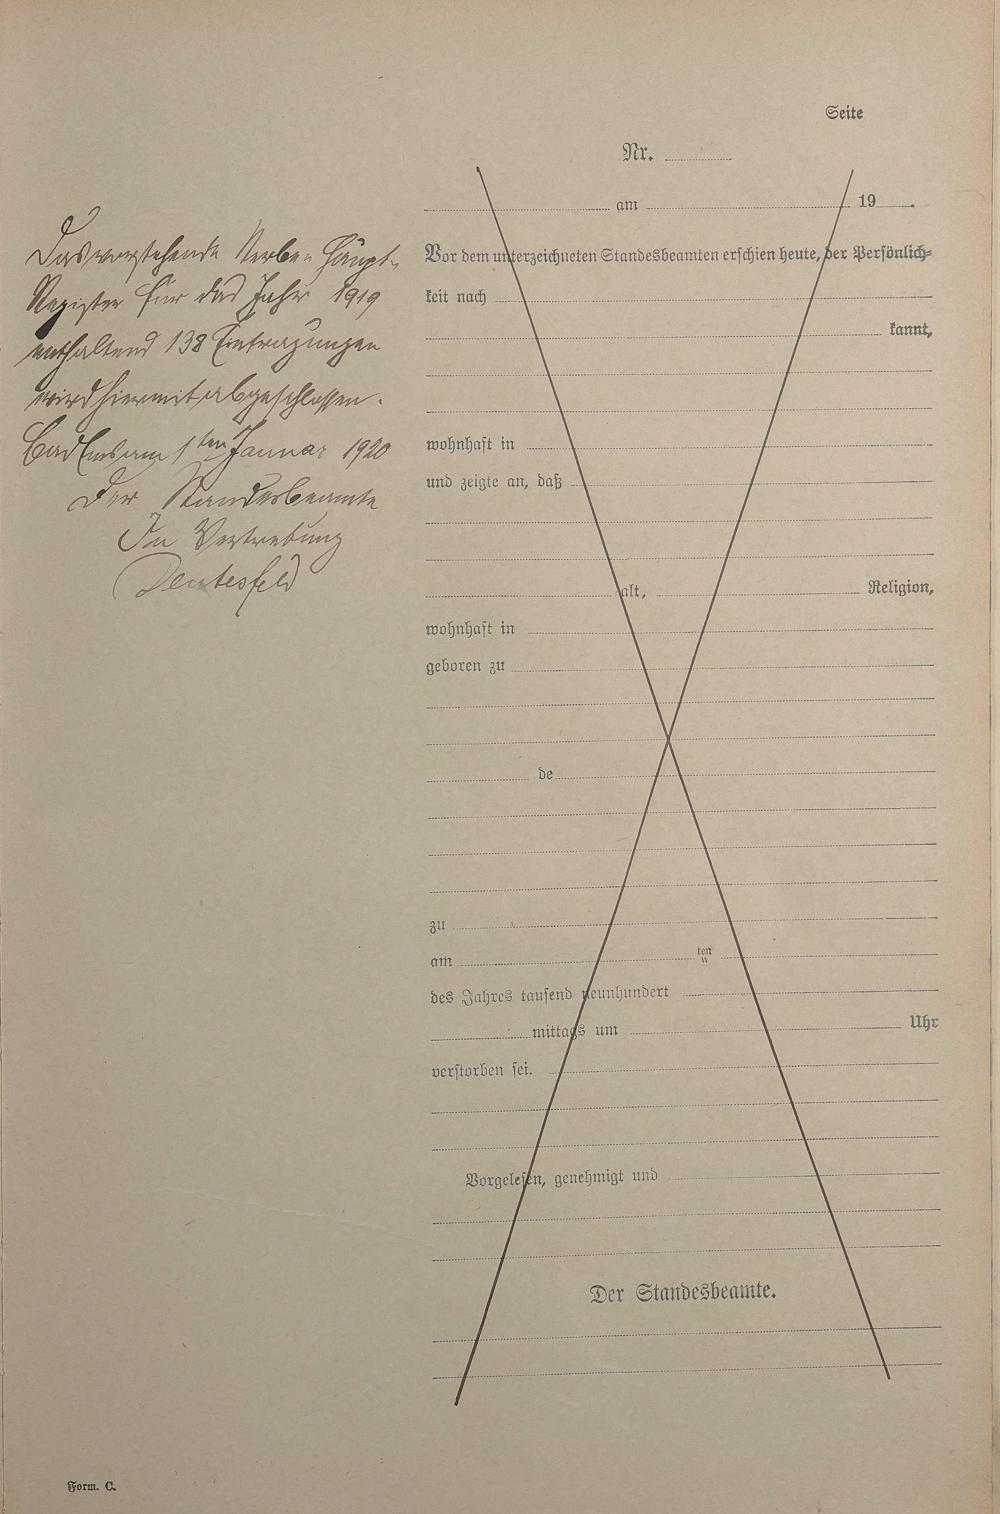 Seite
Nr.
am 19 .
Das vorstehende Sterbe-Haupt-
Register für das Jahr 1919
enthaltend 138 Eintragungen
wird hiermit abgeschlossen.
Bad Ems am 1ten Januar 1920
Der Standesbeamte
In Vertretung
Vor dem unterzeichneten Standesbeamten erschien heute, der Persönlich-
keit nach
kannt,
wohnhaft in
und zeigte an, daß
alt, Religion,
wohnhaft in
geboren zu
de
zu
am ten
des Jahres tausend neunhundert
mittags um Uhr
verstorben sei.
Vorgelesen, genehmigt und
Der Standesbeamte.
Form. C.